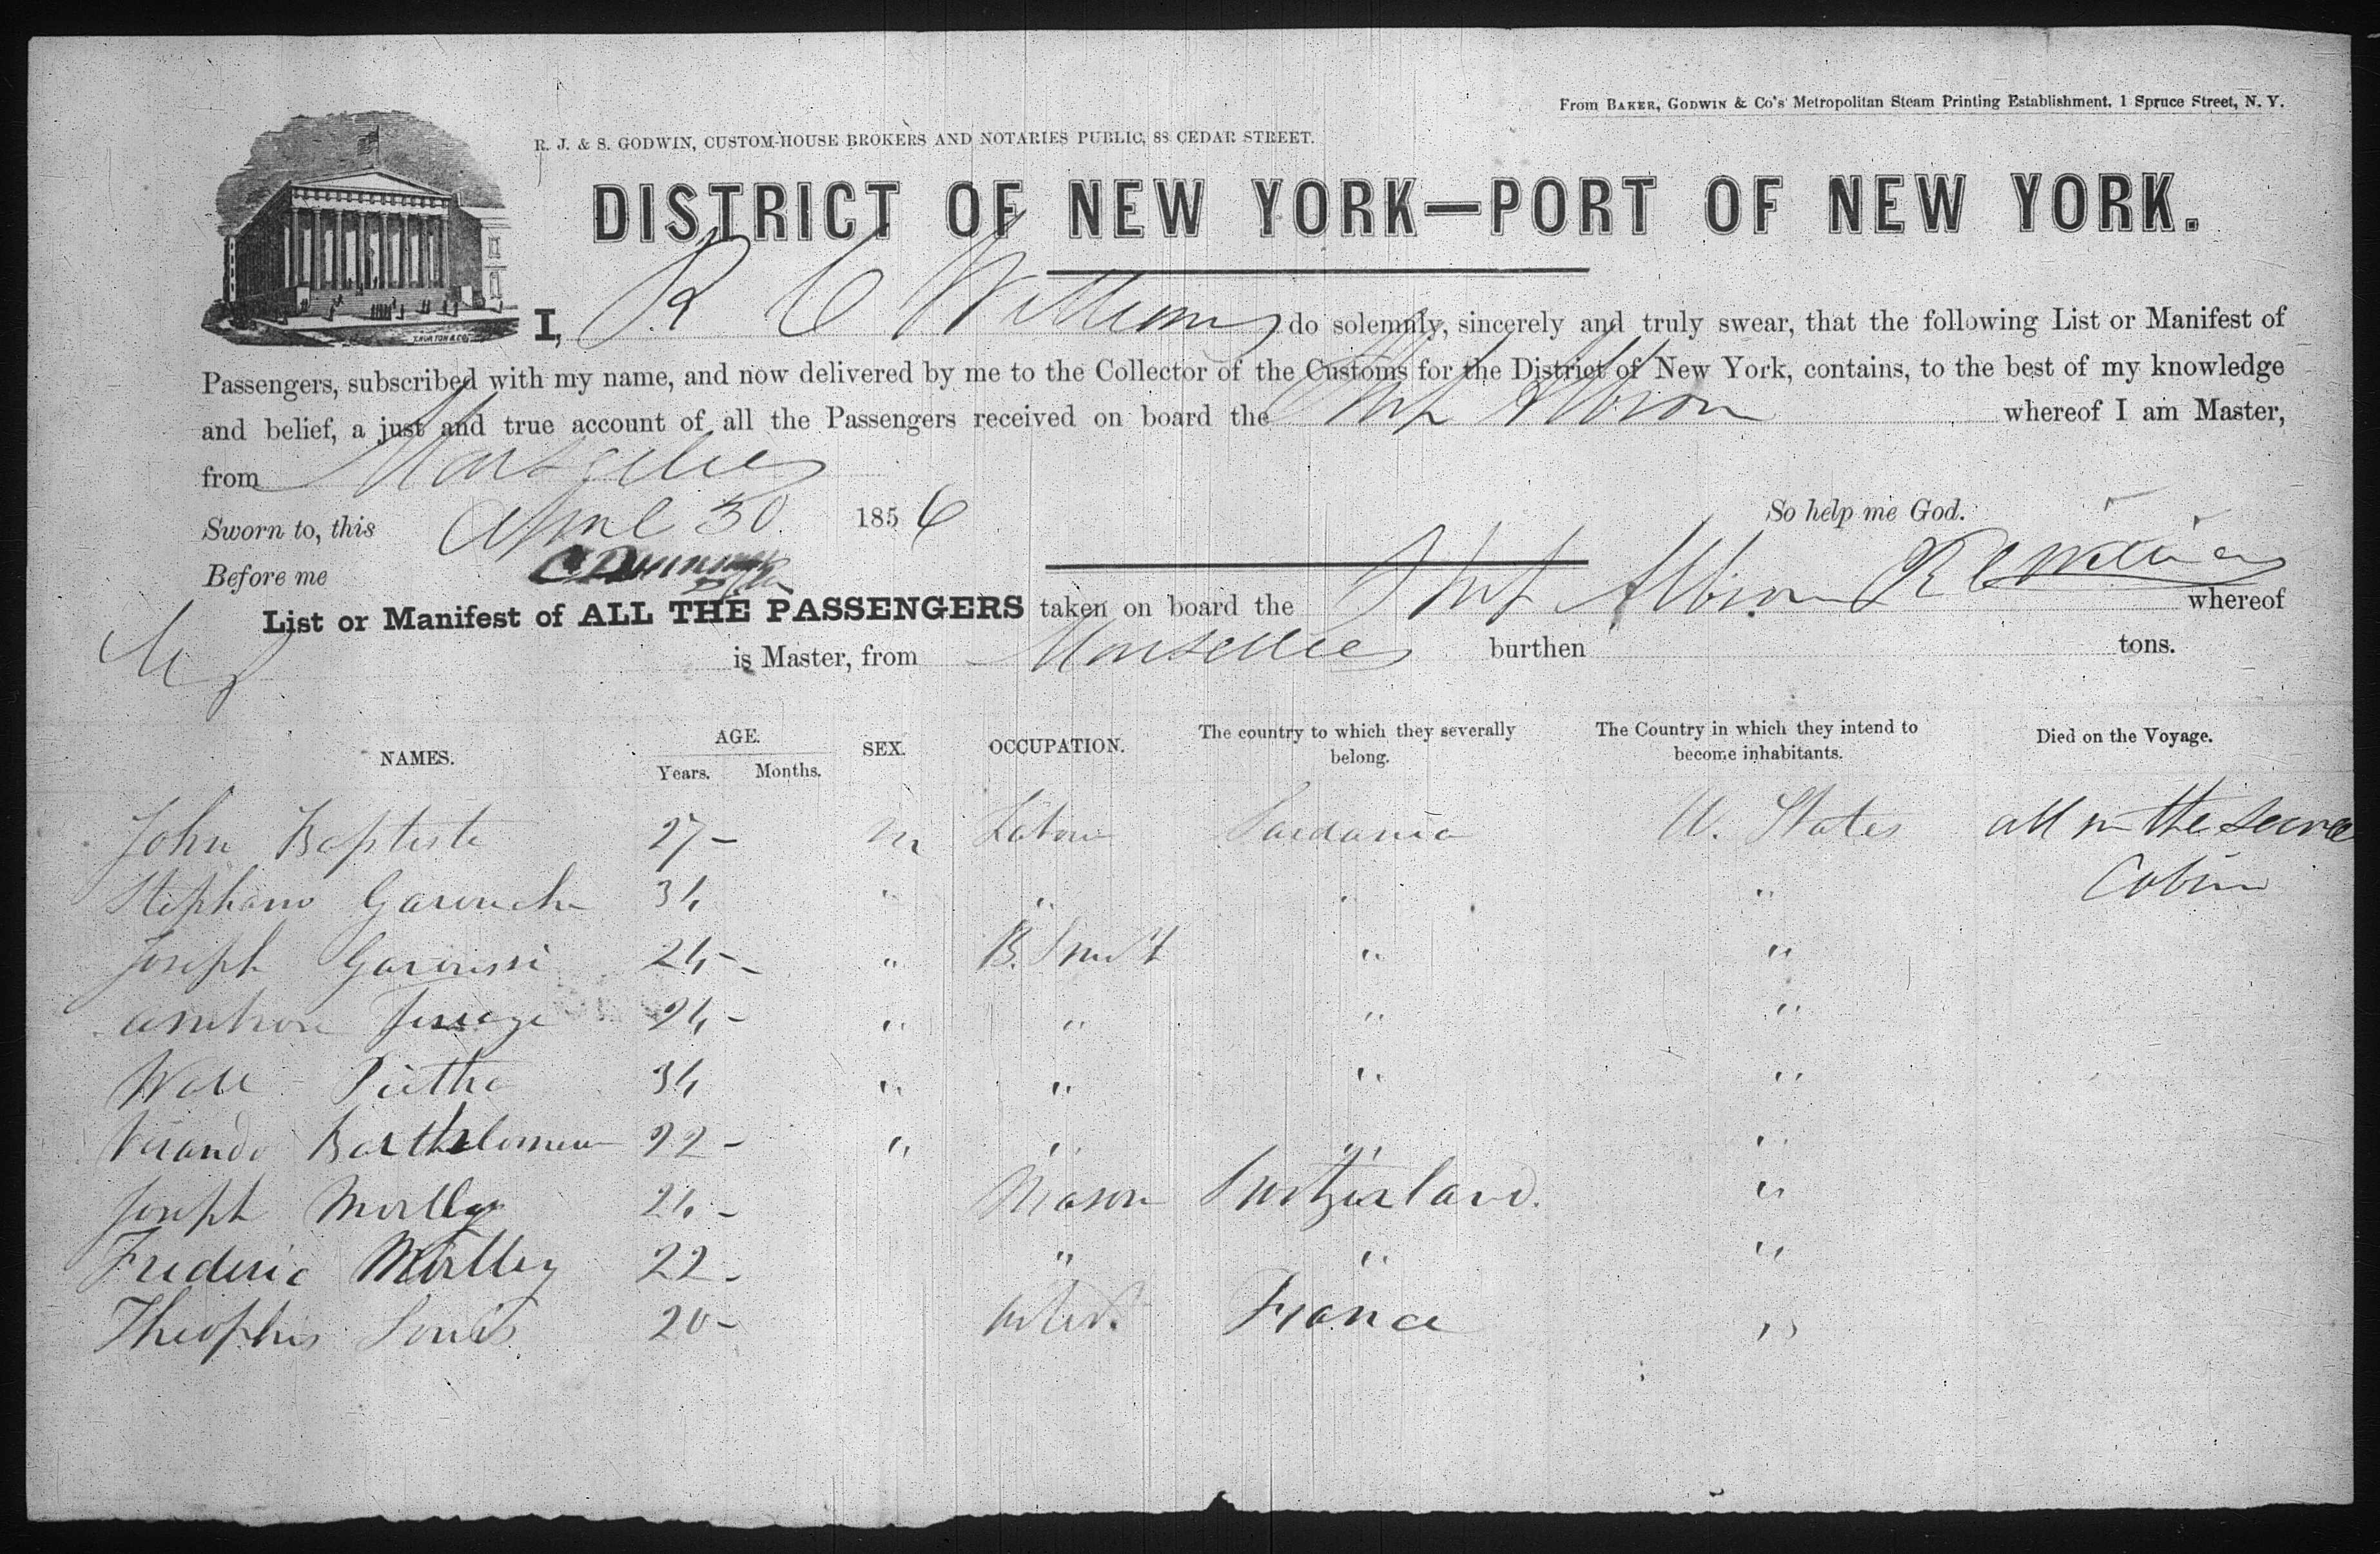 From BAKER, GODWIN & Co's Metropolitan Steam Printing Establishment, 1 Spruce Street, N. Y.
R. J. & S. GODWIN, CUSTOM-HOUSE BROKERS AND NOTARIES PUBLIC, 88 CEDAR STREET.
DISTRICT OF NEW YORK—PORT OF NEW YORK.
I, R C Williams do solemnly, sincerely and truly swear, that the following List or Manifest of
Passengers, subscribed with my name, and now delivered by me to the Collector of the Customs for the District of New York, contains, to the best of my knowledge
and belief, a just and true account of all the Passengers received on board the Ship Albion whereof I am Master,
from Marseilles
Sworn to, this April 30 1856 So help me God.
Before me
List or Manifest of ALL THE PASSENGERS taken on board the Ship Albion R C Williams whereof
is Master, from Marseilles burthen tons.
NAMES. AGE. Years. Months. SEX. OCCUPATION. The country to which they severally belong. The Country in which they intend to become inhabitants. Died on the Voyage.
John Baptiste 27 – m Labour Sardania U. States all in the second
Stephano 34 " " " " Cabin
Joseph 24 – " B. Smit " "
24 – " " " "
34 " " " "
Bartholomew 22 – " " " "
Joseph 24 – Mason Switzerland. "
Frederic 22 – " " "
Louis 20 – France "